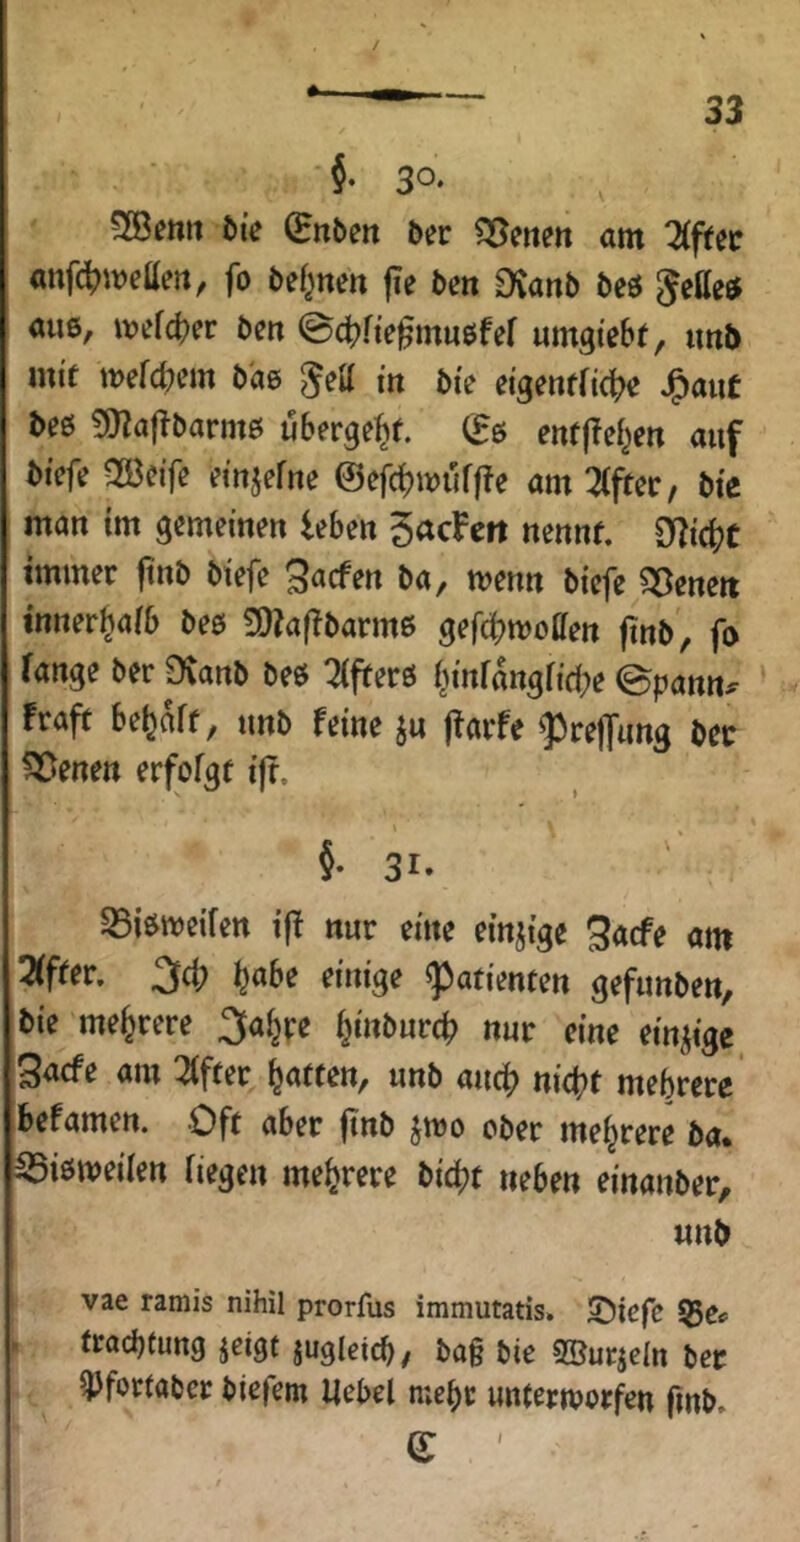 33
§. 30.
Wenn die Enden der Venen am After
anschwellen, so dehnen sie den Rand des Felles
aus, welcher den Schließmuskel umgiebt, und
mit welchem das Fell in die eigentliche Haut
des Mastdarms übergeht. Es entstehen auf
diese Weise einzelne Geschwülste am After, die
man im gemeinen Leben Zacken nennt. Nicht
immer sind diese Zacken da, wenn diese Venen
innerhalb des Mastdarms geschwollen sind, so
lange der Rand des Afters hinlängliche Spann-
kraft behält, und keine zu starke Pressung der
Venen erfolgt ist.
§. 31.
Bisweilen ist nur eine einzige Zacke am
After. Ich habe einige Patienten gefunden,
die mehrere Jahre hindurch nur eine einzige
Zacke am After hatten, und auch nicht mehrere
bekamen. Oft aber sind zwo oder mehrere da.
Bisweilen liegen mehrere dicht neben einander,
und
vae ramis nihil prorsus immutatis. Diese Be-
trachtung zeigt zugleich, daß die Wurzeln der
Pfortader diesem Uebel mehr unterworfen sind.
E